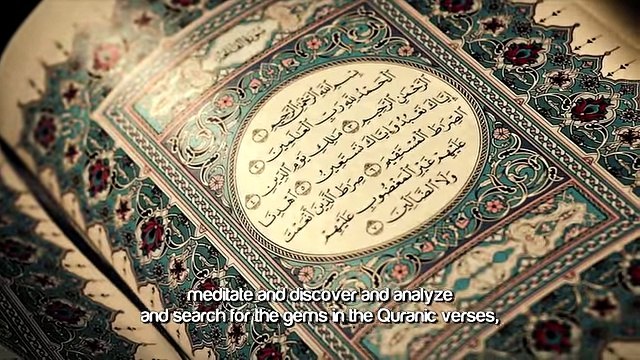 بِسْمِ اللَّهِ الرَّحْمَٰنِ الرَّحِيمِ
الْحَمْدُ لِلَّهِ رَبِّ الْعَالَمِينَ
الرَّحْمَٰنِ الرَّحِيمِ مَالِكِ يَوْمِ الدِّينِ
إِيَّاكَ نَعْبُدُ وَإِيَّاكَ نَسْتَعِينُ اهْدِنَا
الصِّرَاطَ الْمُسْتَقِيمَ صِرَاطَ الَّذِينَ أَنْعَمْتَ
عَلَيْهِمْ غَيْرِ الْمَغْضُوبِ عَلَيْهِمْ
وَلَا الضَّالِّينَ
meditate and discover and analyze
and search for the gems in the Quranic verses,